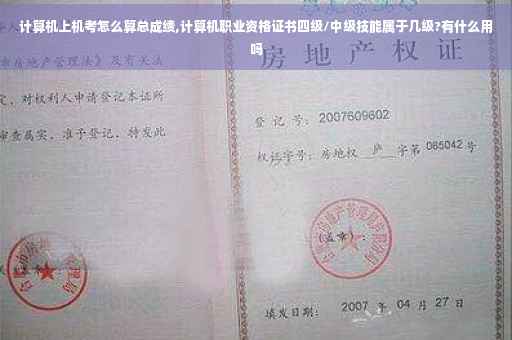 计算机上机考怎么算总成绩,计算机职业资格证书四级/中级技能属于几级?有什么用
吗
房地产管理法》及有关法
房地产权证
定,对权利人申请登记本证所
审查属实,准予登记,特发此
登记号: 2007609602
权证字号: 房地权 庐 字第 085042 号
(盖章):
填发日期: 2007 年 04 月 27 日